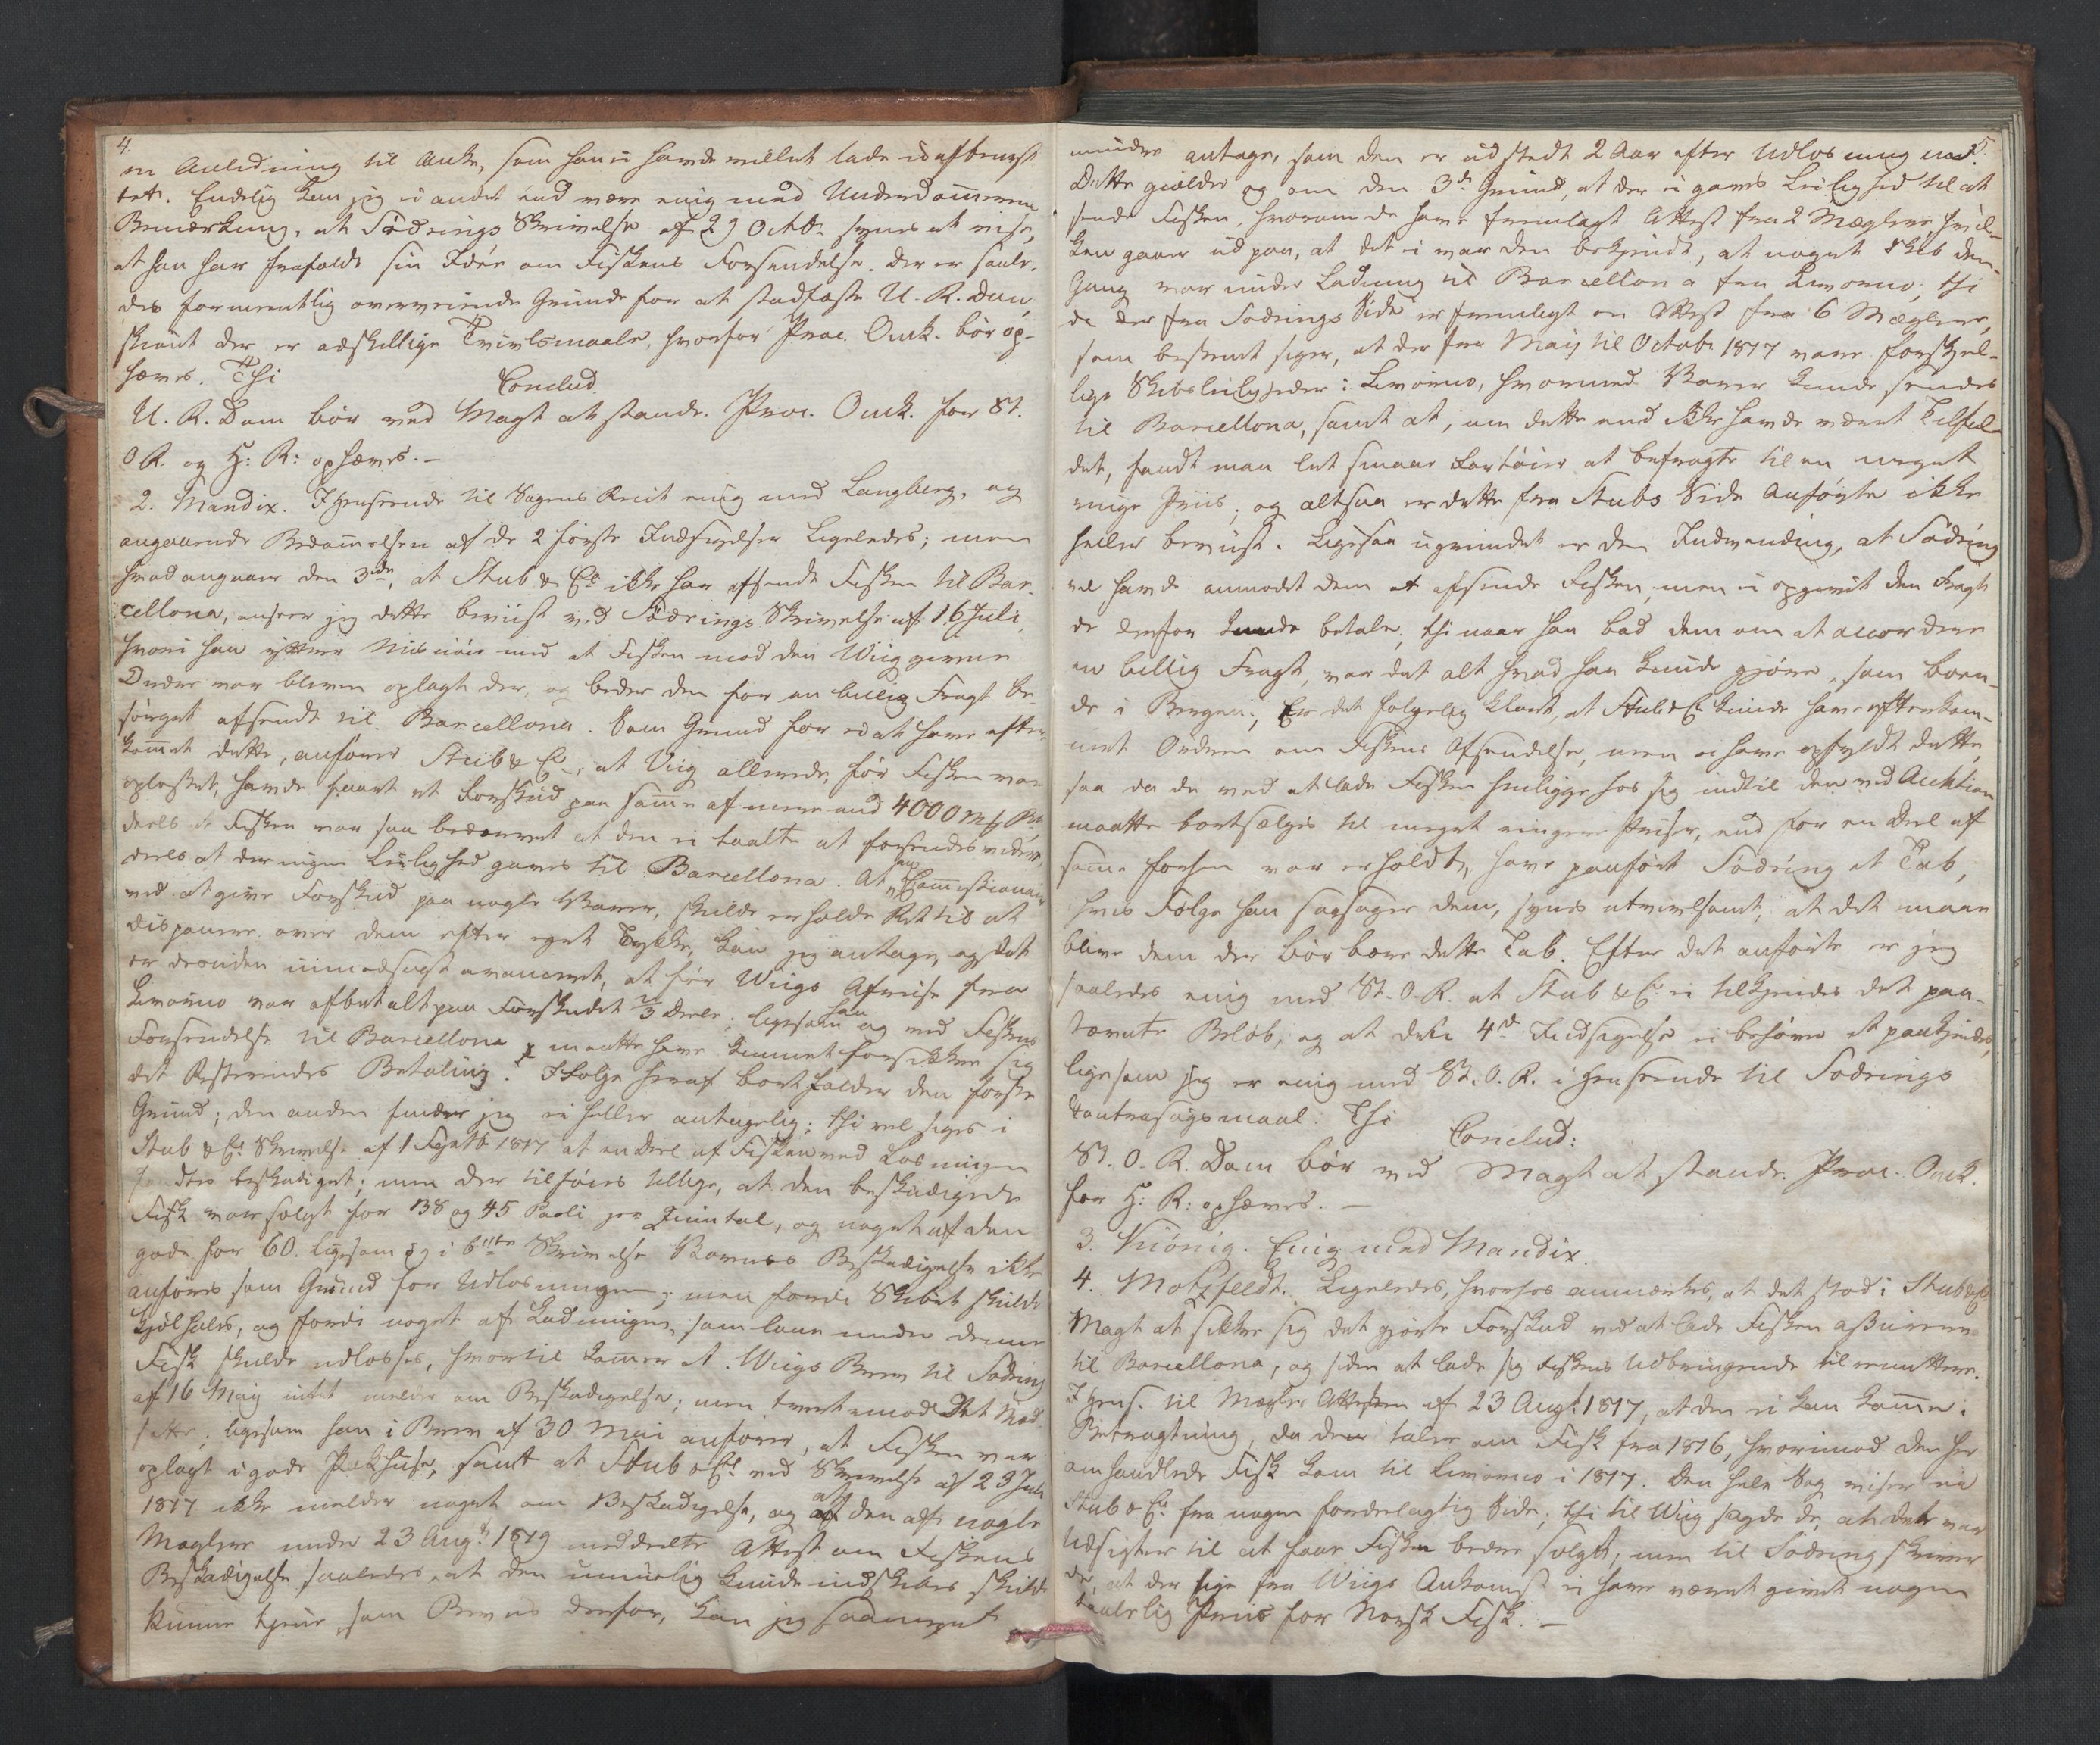 4.
en Anledning til Anke, som han ei havde villet lade ubenyt-
tet. Endelig kan jeg ei andet end være enig med Underdommerens
Bemærkning, at Södrings Skrivelse af 29 Octbr. synes at vise,
at han har frafaldt sin Idée om Fiskens Forsendelse. Der er saale-
des formentlig overveiende Grunde for at stadfæste U. R. Dom,
skiönt der er adskillige Tvivlsmaale, hvorfor Proc. Omk. bör op-
hæves. Thi
Conclud.
U. R. Dom bör ved Magt at stande. Proc. Omk. for St.
O R. og H: R: ophæves. –
2. Mandix. I Henseende til Sagens Recit enig med Langberg, og
angaaende Bedömmelsen af de 2 förste Indsigelser ligeledes; men
hvad angaaer den 3die, at Stub & Co ikke har afsendt Fisken til Bar-
cellona, anseer jeg dette beviist ved Södrings Skrivelse af 16 Juli,
hvori han yttrer Misnöie med at Fisken mod den Wiig givne
Ordre var bleven oplagt der, og beder den for en billig Fragt be-
sörget afsendt til Barcellona. Som Grund for ei at have efter-
kommet dette, anförer Stub & Co, at Wiig allerede, för Fisken var
oplosset, havde faaet et Forskud paa samme af mere end 4000 Mk Bo,
deels at Fisken var saa bedærvet at den ei taalte at forsendes videre,
deels at der ingen Leilighed gaves til Barcellona. At en Commissionair
ved at give Forskud paa nogle Varer, skulde erholde Ret til at
disponere over dem efter eget Tykke, kan jeg ei antage, og det
er desuden uimodsagt avanceret, at för Wiigs Afreise fra
Livorno var afbetalt paa Forskudet 2/3 Dele; ligesom han og ved Fiskens
Forsendelse til Barcellona maatte have kunnet forsikkre sig
det Resterendes Betaling. I Fölge heraf bortfalder den förste
Grund; den anden finder jeg ei heller antagelig; thi vel siges i
Stub & Co Skrivelse af 1 Septbr 1817 at en Deel af Fisken ved Losningen
fandtes beskadiget; men der tilföies tillige, at den beskadigede
Fisk var solgt for 38 og 45 Paoli pro Quintal, og noget af den
gode for 60. Ligesom og i bem.te Skrivelse Varenes Beskadigelse ikke
anföres som Grund for Udlosningen; men fordi Skibet skulde
kjölhales, og fordi noget af Ladningen, som laae under denne
Fisk skulde udlosses, hvortil kommer at Wiigs Brev til Södring
af 16 Maij intet melder om Beskadigelse; men tvertimod det Mod-
satte; ligesom han i Brev af 30 Mai anförer, at Fisken var
oplagt i gode Pakhuse, samt at Stub & Co ved Skrivelse af 23 Juli
1817 ikke melder noget om Beskadigelse, og at den af nogle
Mæglere under 23 Aug. 1819 meddeelte Attest om Fiskens
Beskadigelse saaledes, at den umuelig kunde indskibes skulde
kunne tjene som Beviis derfor, kan jeg saameget
5.
mindre antage, som den er udstedt 2 Aar efter Udlosningen.
Dette gielder og om den 3de Grund, at der ei gaves Leilighed til at
sende Fisken, hvorom de have fremlagt Attest fra 2 Mæglere, hvil-
ken gaaer ud paa, at det ei var dem bekjendt, at noget Skib den-
Gang var under Ladning til Barcellona fra Livorno; thi
da der fra Södrings Side er fremlagt en Attest fra 6 Mæglere,
som bestemt siger, at der fra Maij til Octobr 1817 vare forskjel-
lige Skibsleiligheder i Livorno, hvormed Varer kunde sendes
til Barcellona, samt at, om dette end ikke havde været Tilfæl-
det, fandt man let smaae Fartöier at befragte til en meget
ringe Priis; og altsaa er dette fra Stubs Side Anförte ikke
heller beviist. Ligesaa ugrundet er den Indvending, at Södring
vel havde anmodet dem at afsende Fisken, men ei opgivet den Fragt
de derfor kunde betale; thi naar han bad dem om at accordere
en billig Fragt, var det alt hvad han kunde gjöre, som boen-
de i Bergen. Er det fölgelig klart, at Stub & Co kunde have efterkom-
met Ordren om Fiskens Afsendelse, men ei have opfyldt dette,
saa da de ved at lade Fisken henligge hos sig indtil den ved Auktion
maatte bortsælges til meget ringere Priser, end for en Deel af
samme forhen var erholdt, have paafört Södring et Tab,
hvis Fölge han sagsöger dem, synes utvivlsomt, at det maae
blive dem der bör bære dette Tab. Efter det anförte er jeg
saaledes enig med St. O. R. at Stub & Co ei tilkjendes det paa-
stævnte Belöb, og at den 4de Indsigelse ei behöver at paakjendes,
ligesom jeg er enig med St. O. R. i Henseende til Södrings
Contrasögsmaal. Thi
Conclud:
St. O. R. Dom bör ved Magt at stande. Proc. Omk.
for H: R: ophæves. –
3. Kiönig. Enig med Mandix.
4. Motzfeldt. Ligeledes, hvorhos anmærkes, at det stod i Stub & Co
Magt at sikkre sig det gjorte Forskud ved at lade Fisken assurere
til Barcellona, og siden at lade sig Fiskens Udbringende tilremittere.
I Hens. til Mægler Attesten af 23 Aug. 1817, at den ei kan komme i
Betragtning, da den taler om Fisk fra 1816, hvorimod den her
omhandlede Fisk kom til Livorno i 1817. Den hele Sag viser ei
Stub & Co fra nogen fordeelagtig Side; thi til Wiig sagde de, at det var
Udsigter til at faae Fisken bedre solgt, men til Södring skriver
de, at der lige fra Wiigs Ankomst ei have været givet nogen
taalelig Priis for Norsk Fisk. –